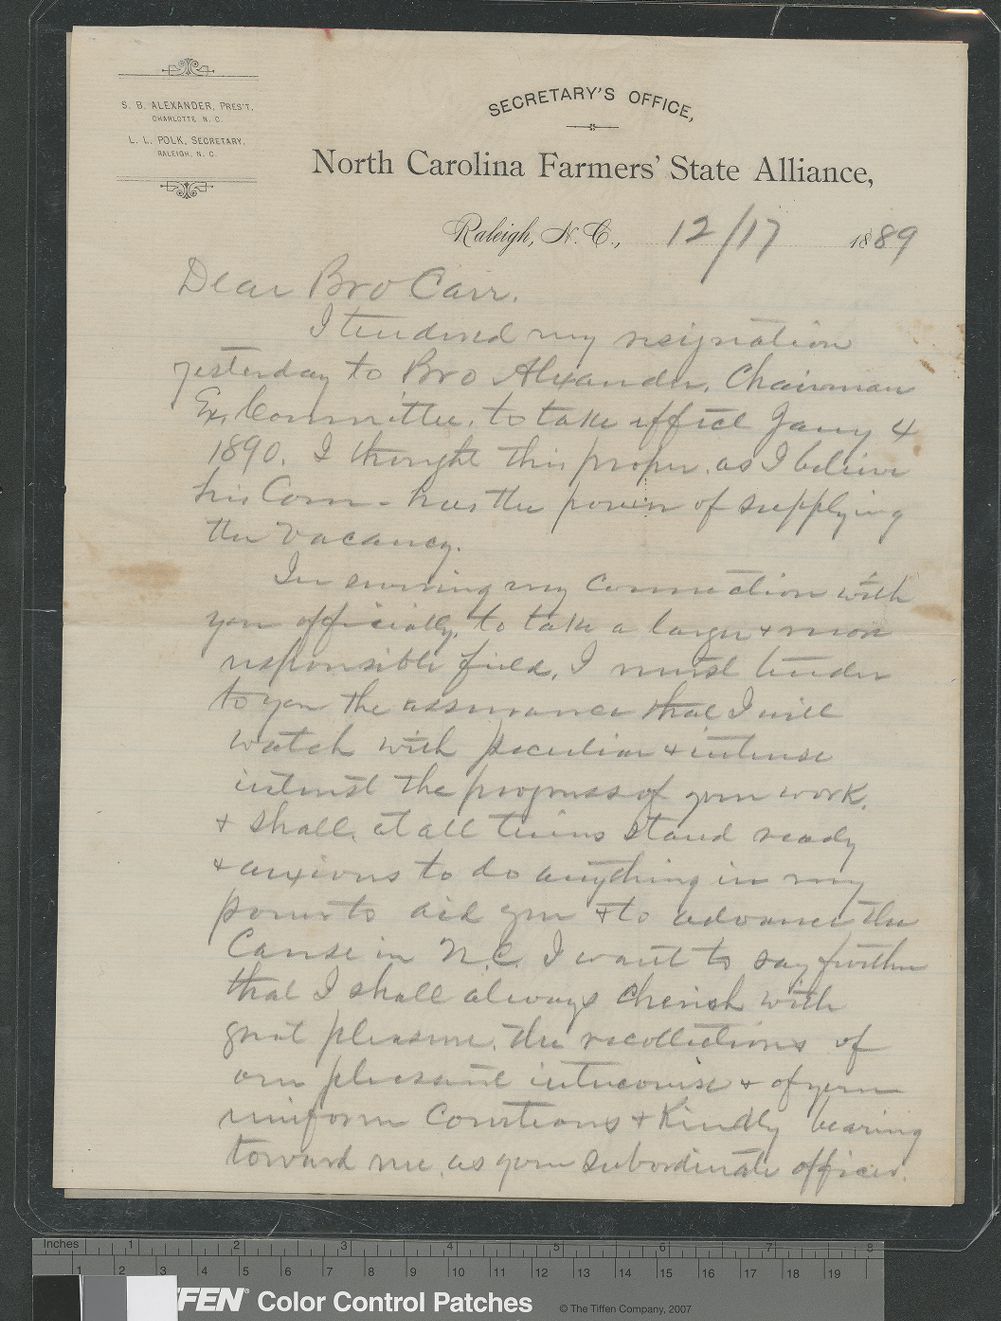 S. B. ALEXANDER, PRES'T,
CHARLOTTE, N. C.
L. L. POLK, SECRETARY,
RALEIGH, N. C.
SECRETARY'S OFFICE,
North Carolina Farmers' State Alliance,
Raleigh, N. C., 12/17 1889
Dear Bro Carr.
I tendered my resignation
yesterday to Bro Alexander, Chairman
Ex. Committee, to take effect Jany 4
1890. I thought this proper, as I believe
his Com - has the power of supplying
the vacancy.
In severing my connection with
you officially, to take a larger & more
responsible field, I must tender
to you the assurance that I will
watch with peculiar & intense
interest the progress of your work,
& shall, at all times stand ready
& anxious to do anything in my
power to aid you & to advance the
Cause in N.C. I want to say further
that I shall always cherish with
great pleasure, the recollections of
our pleasant intercourse & of your
uniform Courteous & Kindly bearing
toward me, as your subordinate officer.
Inches 1 2 3 4 5 6 7 8
1 2 3 4 5 6 7 8 9 10 11 12 13 14 15 16 17 18 19
TIFFEN® Color Control Patches © The Tiffen Company, 2007